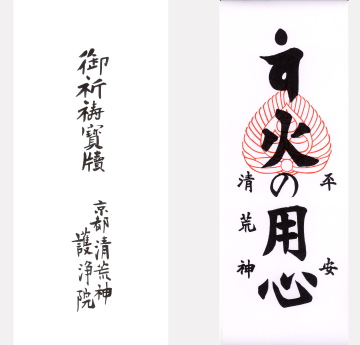 御祈祷寶牘
京都清荒神
護浄院
火の用心
平安
清荒神